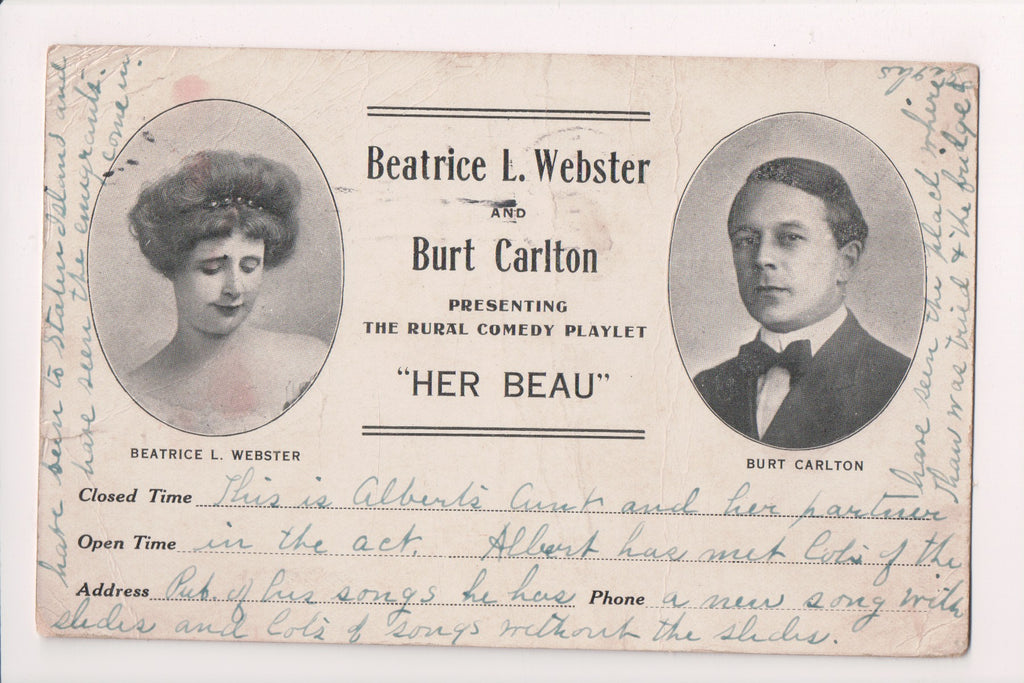 Beatrice L. Webster
AND
Burt Carlton
PRESENTING
THE RURAL COMEDY PLAYLET
"HER BEAU"
BEATRICE L. WEBSTER
BURT CARLTON
Closed Time This is Albert's Aunt and her partner
Open Time in the act. Albert has met Lots of the
Address Pub. of his songs he has Phone a new song with
slides and Lots of songs without the slides.
have seen the place where
Thaw was tried & the bridge
have been to Staten Island and
have seen the emigrants
come in.